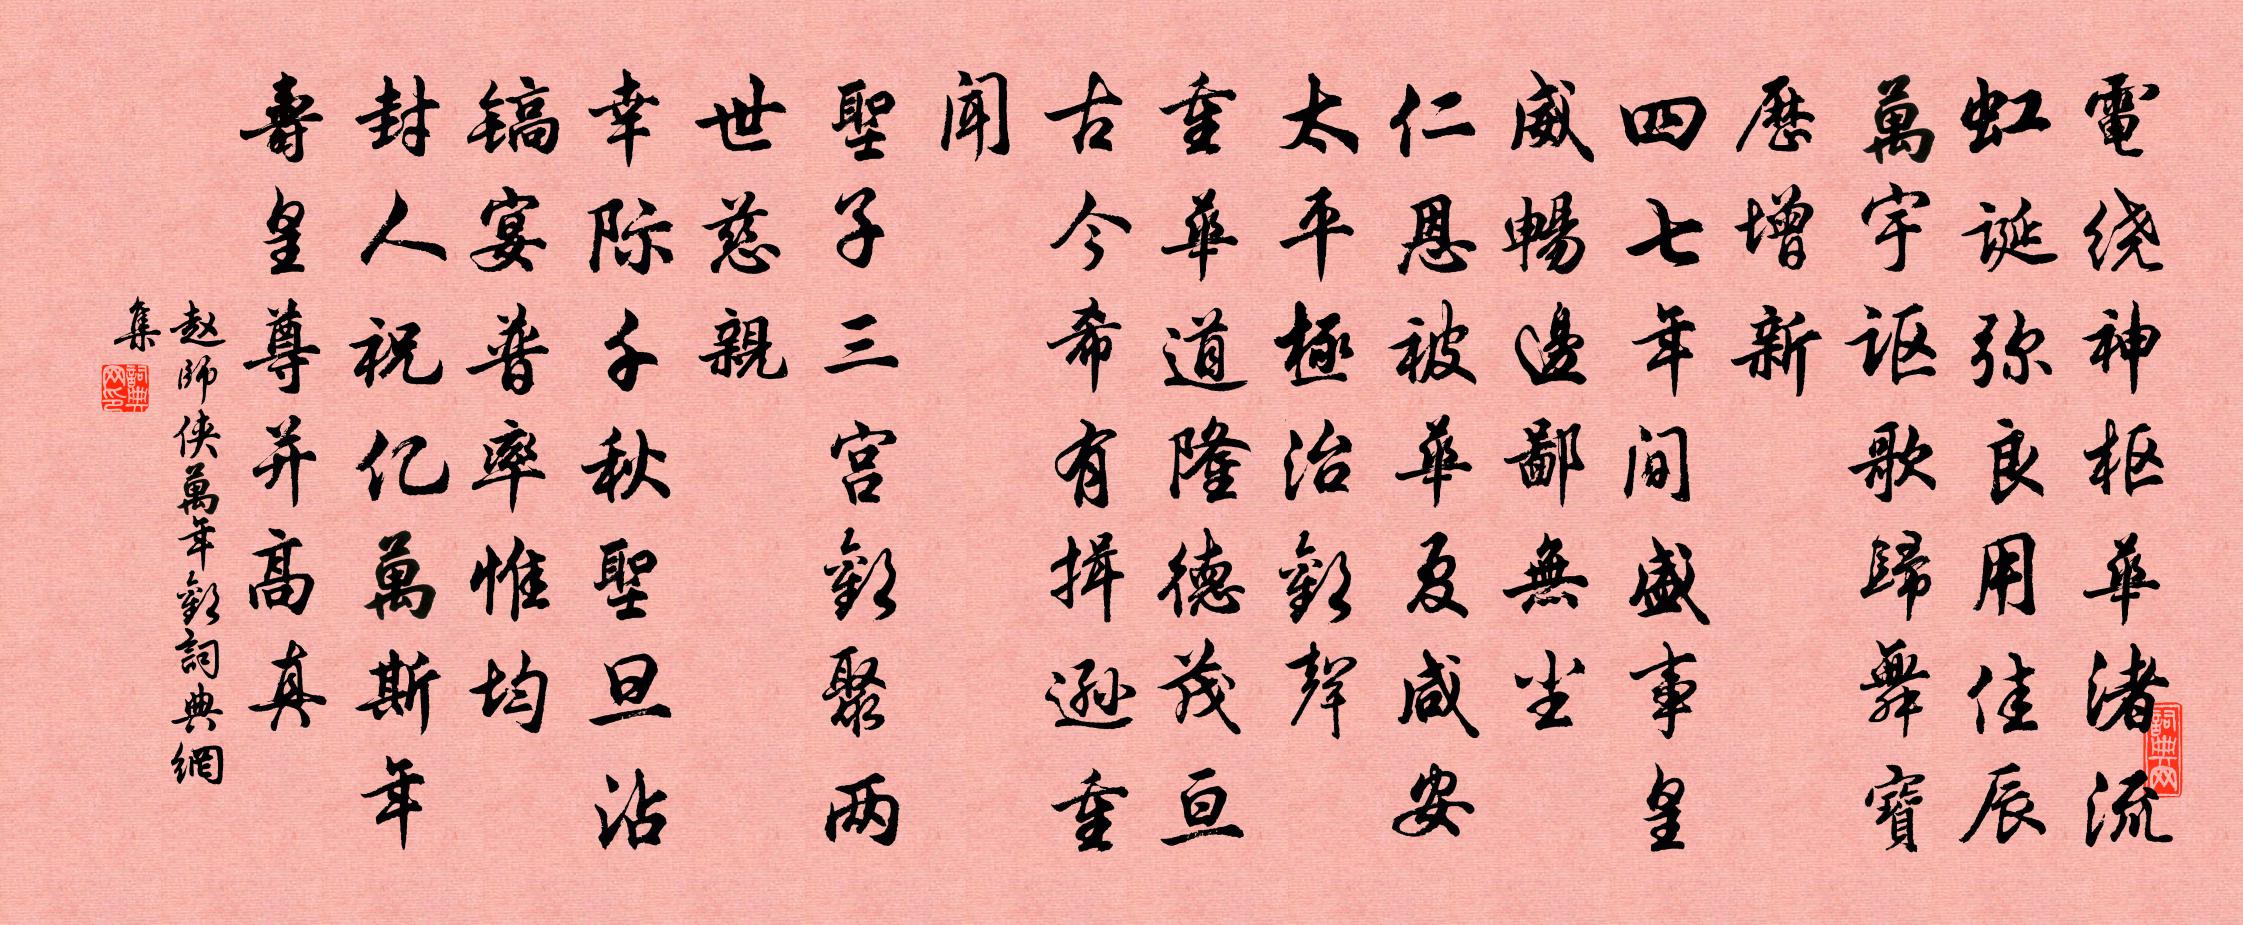 電绕神枢華渚流
虹诞弥良用佳辰
萬宇讴歌歸舞寶
歷增新
四七年间盛事皇
威暢邊鄙無尘
仁恩被華夏咸安
太平極治歡聲
重華道隆德茂亘
古今希有揖遜重
闻
聖子三宫歡聚两
世慈親
幸际千秋聖旦沾
镐宴普率惟均
封人祝亿萬斯年
壽皇尊并高真
赵師侠萬年歡詞典網
集
詞典网印
詞典网